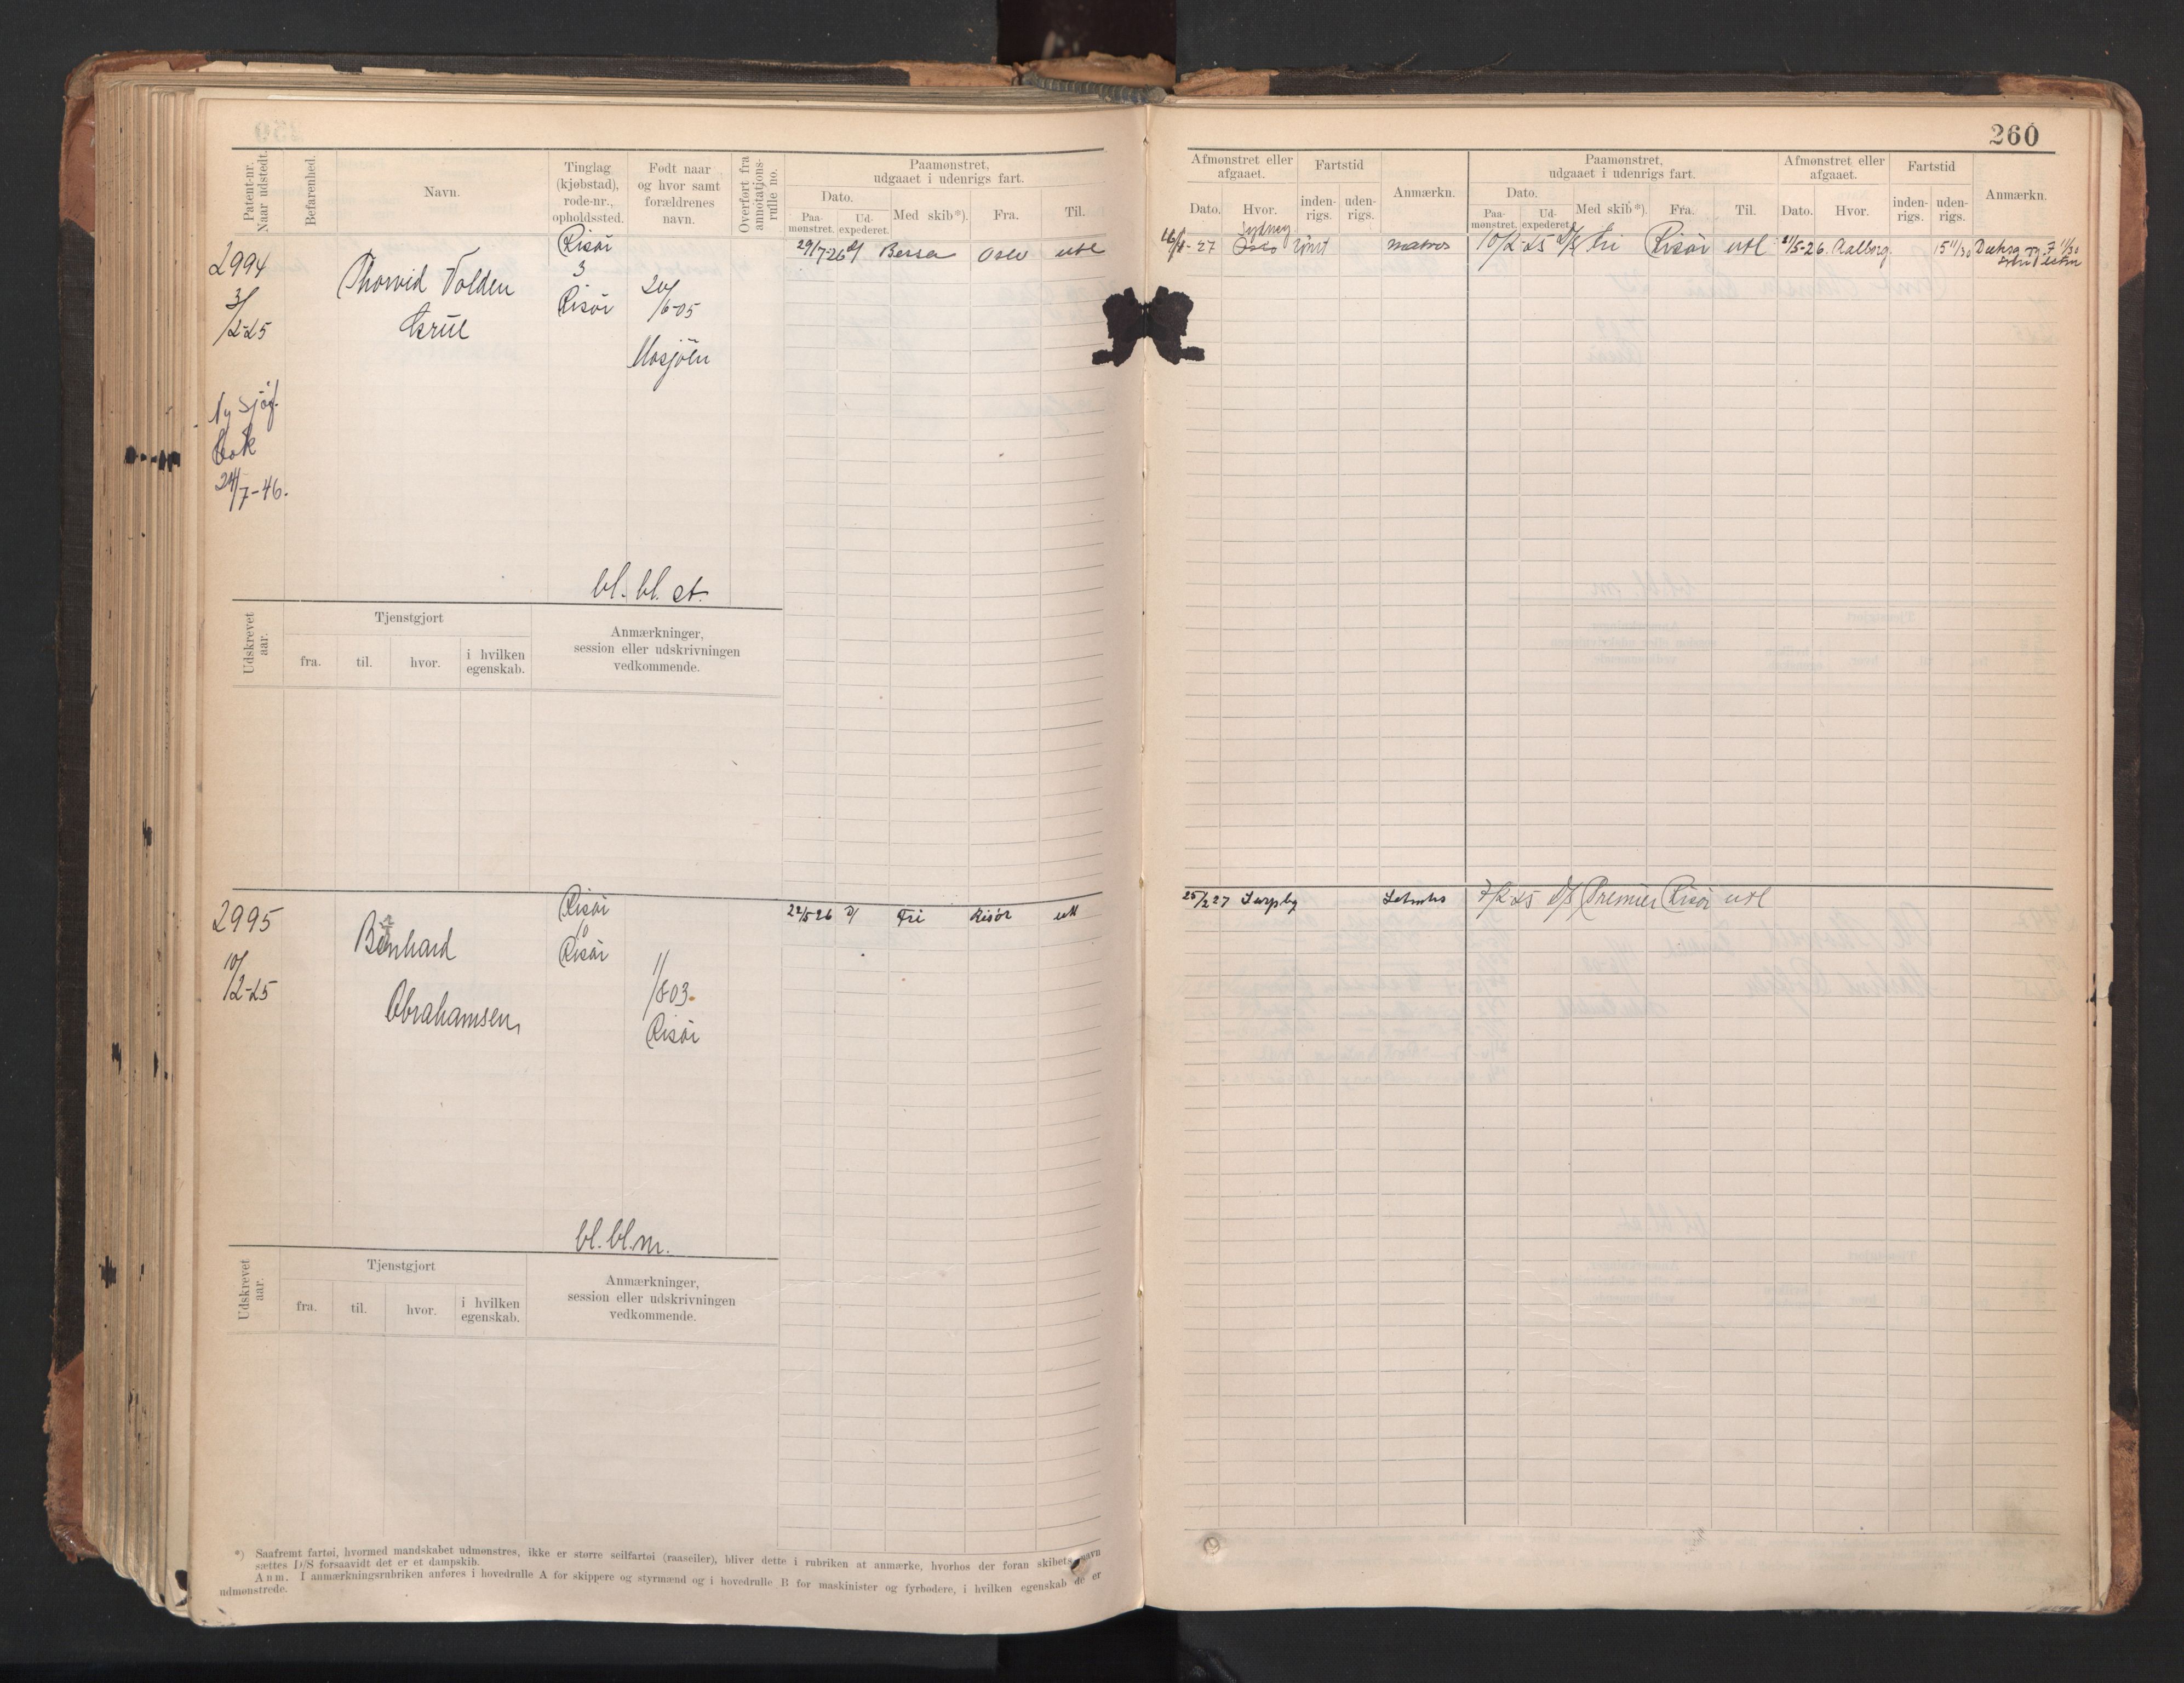 260
Patent-nr. Naar udstedt.
Befarenhed.
Navn.
Tinglag (kjøbstad), rode-nr., opholdssted.
Født naar og hvor samt forældrenes navn.
Overført fra annotations-rulle no.
Paamønstret, udgaaet i udenrigs fart.
Dato.
Paa-mønstret.
Ud-expederet.
Med skib*).
Fra.
Til.
Afmønstret eller afgaaet.
Dato.
Hvor.
Fartstid
inden-rigs.
uden-rigs.
Anmærkn.
Paamønstret, udgaaet i udenrigs fart.
Dato.
Paa-mønstret.
Ud-expederet.
Med skib*).
Fra.
Til.
Afmønstret eller afgaaet.
Dato.
Hvor.
Fartstid
inden-rigs.
uden-rigs.
Anmærkn.
2994
3/2-25
Thorvid Volden
Risör
3
Risör
20/6-05
Mosjöen
Ny sjöf.
bok
24/7-46.
29/7-26 D/ Bessa Oslo utl
Sydney
matros
10/2-25 D/S Fri Risör utl
11/5-26. Aalborg. 15 11/30
bl. bl. st.
Udskrevet aar.
Tjenstgjort
fra. til. hvor. i hvilken egenskab.
Anmærkninger,
session eller udskrivningen
vedkommende.
2995
10/2-25
Bernhard
Abrahamsen
Risör
Risör
1/8 03.
Risör
22/5 26 D/ Fri Risör utl
25/2 27 Sarpbg
7/2 25 D/S Premier Risör utl
bl. bl. m.
Udskrevet aar.
Tjenstgjort
fra. til. hvor. i hvilken egenskab.
Anmærkninger,
session eller udskrivningen
vedkommende.
*) Saafremt fartøi, hvormed mandskabet udmønstres, ikke er større seilfartøi (raaseiler), bliver dette i rubriken at anmærke, hvorhos der foran skibets navn
sættes D/S forsaavidt det er et dampskib.
Anm. I anmærkningsrubriken anføres i hovedrulle A for skippere og styrmænd og i hovedrulle B for maskinister og fyrbødere, i hvilken egenskab de er
udmønstrede.